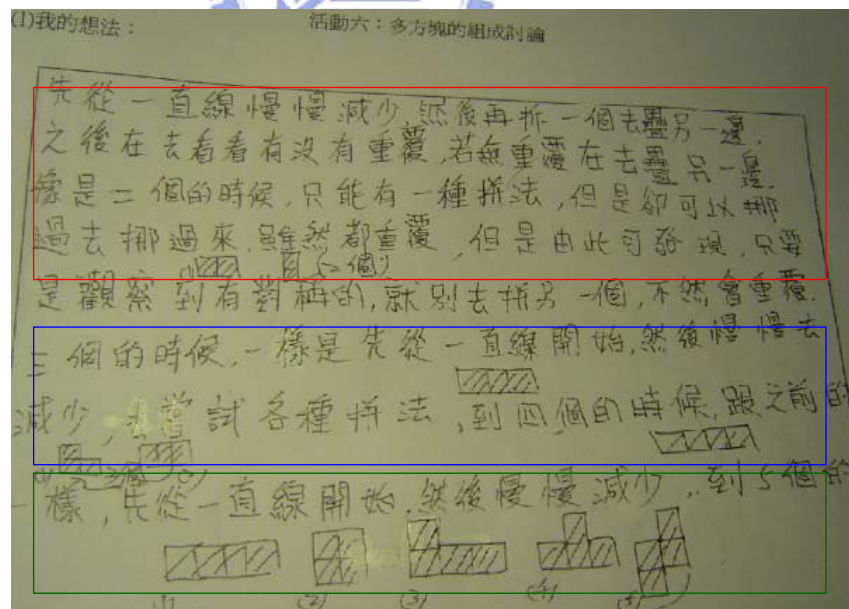 (1)我的想法：
活動六：多方塊的組成討論
先從一直線慢慢減少,然後再拆一個去疊另一邊,
之後在去看看有沒有重覆,若無重覆在去疊另一邊,
像是二個的時候,只能有一種拼法,但是卻可以挪
過去挪過來,雖然都重覆,但是由此可發現,只要
(1) (2個)
是觀察到有對稱的,就別去拼另一個,不然會重覆.
三個的時候,一樣是先從一直線開始,然後慢慢去
減少,去嘗試各種拼法,到四個的時候,跟之前的
(1) 3個 (2)
一樣,先從一直線開始,然後慢慢減少,到5個的
(1) (2) (3) (4) (5)